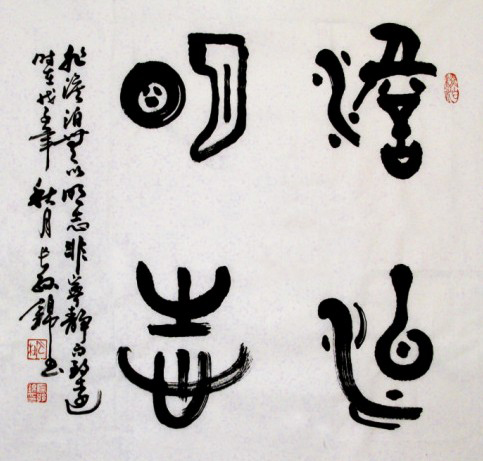 澹泊
明志
非澹泊無以明志非寧靜無以致遠
時在戊子年秋月錦書